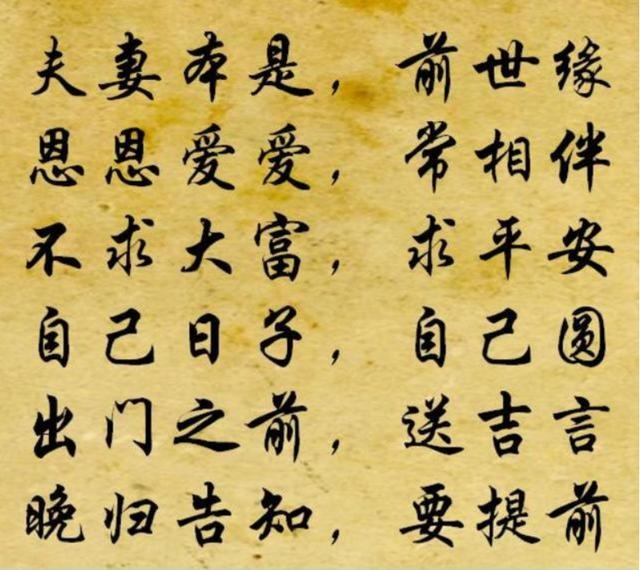 夫妻本是，前世缘
恩恩爱爱，常相伴
不求大富，求平安
自己日子，自己圆
出门之前，送吉言
晚归告知，要提前